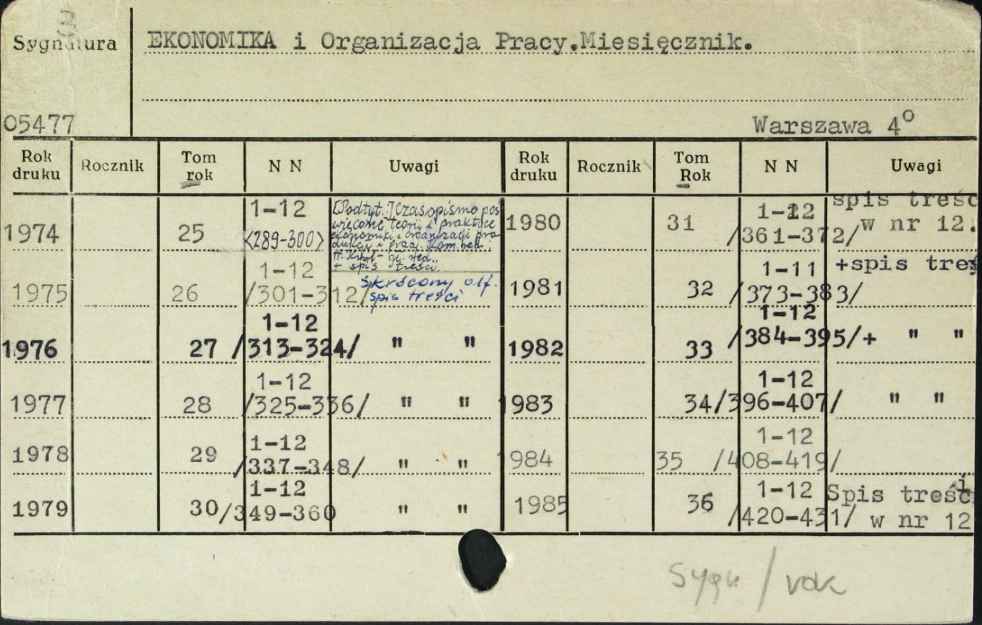 Sygnatura
EKONOMIKA i Organizacja Pracy.Miesięcznik.
05477
Warszawa 4°
Rok druku Rocznik Tom rok N N Uwagi Rok druku Rocznik Tom Rok N N Uwagi
1974 25 1-12 <289-300>
[Podtyt.] Czasopismo poś
więcone teorii i praktyce
ekonomiki i organizacji pro
dukcji i pracy.
+ spis treści.
1975 26 1-12 /301-312/ skrócony
spis treści
1976 27 1-12 /313-324/ " "
1977 28 1-12 /325-336/ " "
1978 29 1-12 /337-348/ " "
1979 30 1-12 /349-360 " "
1980 31 1-12 /361-372/ spis treśc
w nr 12.
1981 32 1-11 /373-383/ +spis treś
1982 33 1-12 /384-395/+ " "
1983 34 1-12 /396-407/ " "
984 35 1-12 /408-419/
1985 36 1-12 /420-431/ Spis treści
w nr 12
Sygn / vdk